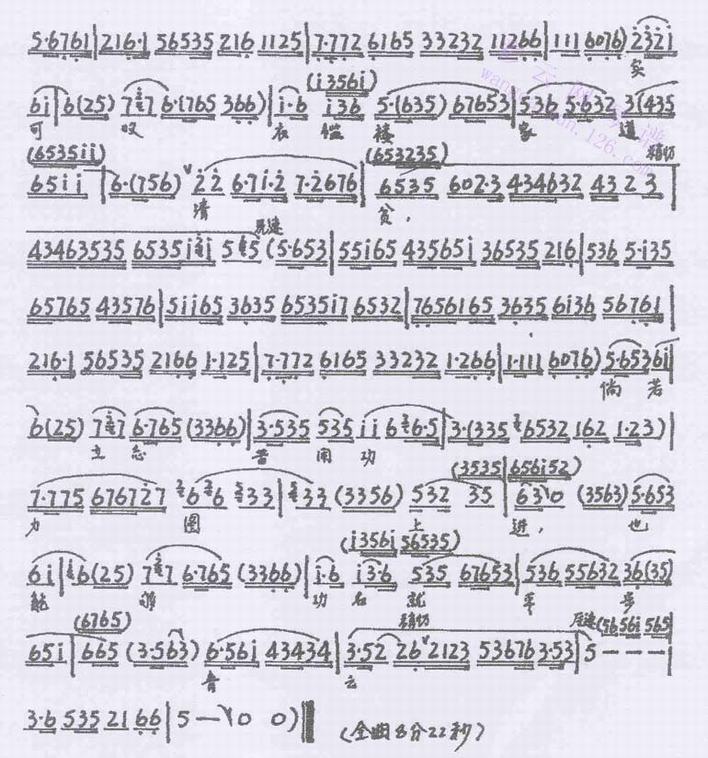 5·6761|216·1 56535 216 1125|7·772 6165 33232 11266|111 6076)2321
实
6i|6(25) 7 7 6·(765 366)|i·6 i36 5·(635) 67653|536 5·632 3(435
(i356i)
可 叹 衣 褴 褛 家 道
稍切
(6535ii) (653235)
65ii|6·(756) 22 6·7i·2 7·2676|6535 602·3 434632 43 2 3
清 贫,
43463535 6535i i 5 5(5·653|55i65 43565i 36535 216|536 5·i35
65765 43576|5ii65 3635 6535i7 6532|7656165 3635 6i36 56761|
216·1 56535 2166 1·125|7·772 6165 33232 1·266|1·111 6076)5·6536i
倘 若
6(25) 7 7 6·765 (3366)|3·535 535 ii 6 6·5|3·(335 6532 162 1·23)|
立 志 苦 用 功
(3535|656i52)
7·775 676727 6 6 33|33 (3356) 532 35|63 0 (3563) 5·653
力 图 上 进, 也
(i356i 56535)
6i|6(25) 7 7 6·765 (3366)|i·6 i3·6 535 67653|536 55632 36(35)
能 够 功 名 就 平 步
(6765) 稍切 (5656i 565)
65i|665 (3·563) 6·56i 43434|3·52 26 2123 53676 3·53|5 - - -|
青 云
3·6 535 21 66|5 — 0 0)‖ (全曲8分22秒)